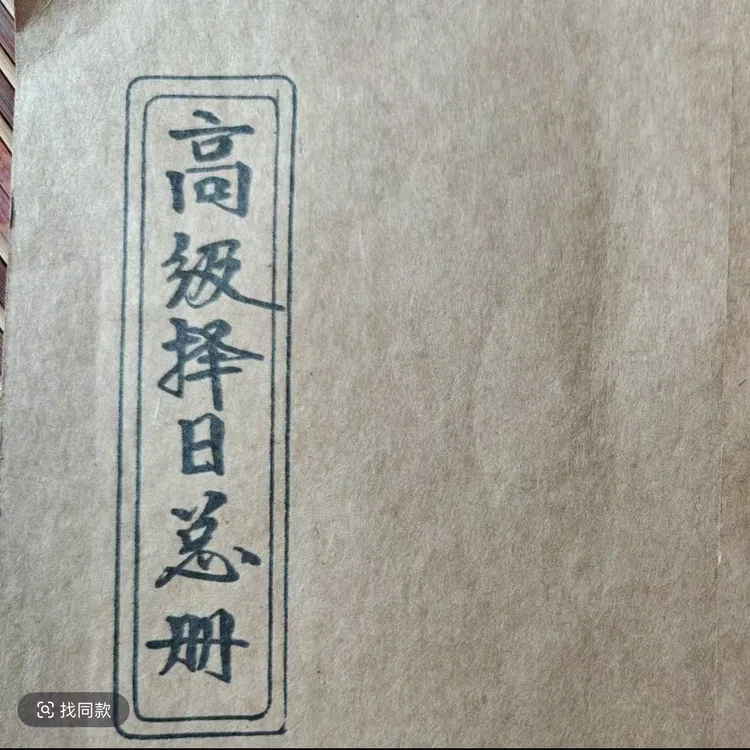 高级择日总册
找同款